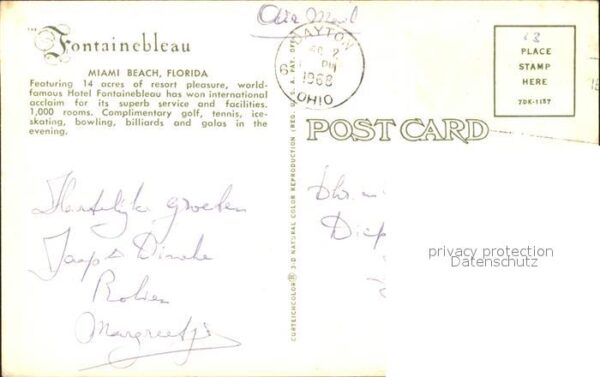 Air Mail
THE Fontainebleau
MIAMI BEACH, FLORIDA
Featuring 14 acres of resort pleasure, world-
famous Hotel Fontainebleau has won international
acclaim for its superb service and facilities.
1,000 rooms. Complimentary golf, tennis, ice-
skating, bowling, billiards and galas in the
evening.
Hartelijke groeten
Jaap
Robien
Margreetje
CURTEICHCOLOR® 3-D NATURAL COLOR REPRODUCTION (REG. U.S. PAT. OFF.)
DAYTON
2
PM
1968
OHIO
POST CARD
PLACE
STAMP
HERE
7DK-1157
Diep
privacy protection
Datenschutz